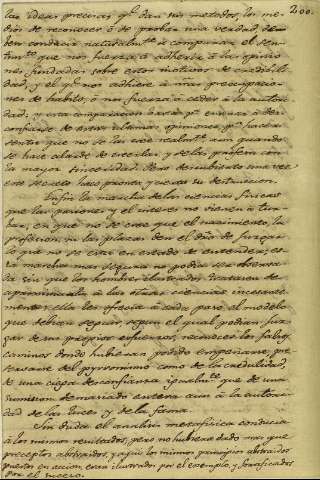 200.
las ideas precisas q.e dan sus metodos, los me-
dios de reconocer ó de probar una verdad de-
ben conducir naturalm.te á comparar el sen-
tim.to que nos fuerza á adherir á la opinion
fundadas sobre estos motivos de credibili-
dad, y el q.e nos adhiere á mas preocupacio-
nes de habito, ó nos fuerza á ceder á la autori-
dad: y esta comparacion basta p.a enseñar á des-
confiarse de estas ultimas opiniones, p.a hacer
sentir que no se las cree realm.te aun quando
se hace alarde de creerlas, y se las profesa con
la mayor sinceridad. Pero descubierto una vez
este secreto hace pronta y cierta su destruccion.
Enfin la marcha de las ciencias fisicas
que las pasiones y el interes no vienen á tur-
bar, en que no se cree que el nacimiento, la
profesion, ni las plazas den el dro de juzgar
lo que no se está en estado de entender; es-
ta marcha mas segura no podia ser observa-
da sin que los hombres ilustrados tratasen de
aproximarla á las otras ciencias incesante-
mente: ella les ofrecia á cada paso el modelo
que debian seguir, segun el qual podian juz-
gar de sus propios esfuerzos, reconocer los falsos
caminos donde hubieran podido empeñarse, pre-
servarse del pyrronismo como de la credulidad,
de una ciega desconfianza, igualm.te que de una
sumision demasiado entera aun á la autori-
dad de las luces y de la fama.
Sin duda el analisis metafisica conducia
á los mismos resultados, pero no hubiera dado mas que
preceptos abstraidos, y aqui los mismos principios abstraidos
puestos en accion, eran ilustrados por el exemplo, y fortificados
por el suceso.